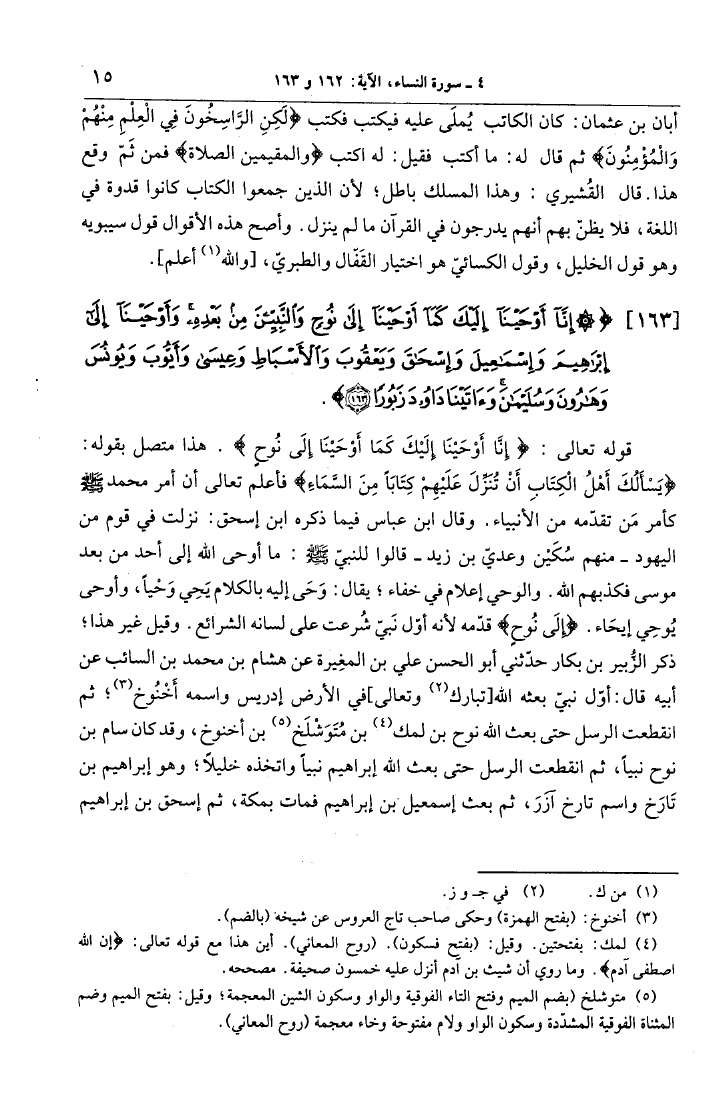 ٤ ـ سورة النساء، الآية: ١٦٢ و ١٦٣
١٥
أبان بن عثمان: كان الكاتب يُملَى عليه فيكتب فكتب ﴿لَكِنِ الرَّاسِخُونَ فِي الْعِلْمِ مِنْهُمْ
وَالْمُؤْمِنُونَ﴾ ثم قال له: ما أكتب فقيل: له اكتب ﴿والمقيمين الصلاة﴾ فمن ثَمّ وقع
هذا. قال القُشيري : وهذا المسلك باطل؛ لأن الذين جمعوا الكتاب كانوا قدوة في
اللغة، فلا يظنّ بهم أنهم يدرجون في القرآن ما لم ينزل. وأصح هذه الأقوال قول سيبويه
وهو قول الخليل، وقول الكسائيّ هو اختيار القَفّال والطبريّ، [والله(١) أعلم].
[١٦٣] ﴿۞ إِنَّآ أَوْحَيْنَآ إِلَيْكَ كَمَآ أَوْحَيْنَآ إِلَىٰ نُوحٍ وَٱلنَّبِيِّـۧنَ مِنۢ بَعْدِهِۦ ۚ وَأَوْحَيْنَآ إِلَىٰٓ
إِبْرَٰهِيمَ وَإِسْمَٰعِيلَ وَإِسْحَٰقَ وَيَعْقُوبَ وَٱلْأَسْبَاطِ وَعِيسَىٰ وَأَيُّوبَ وَيُونُسَ
وَهَٰرُونَ وَسُلَيْمَٰنَ ۚ وَءَاتَيْنَا دَاوُۥدَ زَبُورًا ۝١٦٣﴾ .
قوله تعالى : ﴿ إِنَّا أَوْحَيْنَا إِلَيْكَ كَمَا أَوْحَيْنَا إِلَى نُوحٍ ﴾ . هذا متصل بقوله:
﴿يَسْأَلُكَ أَهْلُ الْكِتَابِ أَنْ تُنَزِّلَ عَلَيْهِمْ كِتَابَاً مِنَ السَّمَاءِ﴾ فأعلم تعالى أن أمر محمد ﷺ
كأمر مَن تقدّمه من الأنبياء. وقال ابن عباس فيما ذكره ابن إسحق: نزلت في قوم من
اليهود ـ منهم سُكَيْن وعديّ بن زيد ـ قالوا للنبيّ ﷺ : ما أوحى الله إلى أحد من بعد
موسى فكذبهم الله. والوحي إعلام في خفاء؛ يقال: وَحَى إليه بالكلام يَحِي وَحْياً، وأوحى
يُوحِي إيحَاء. ﴿إِلَى نُوحٍ﴾ قدّمه لأنه أوّل نَبيّ شُرعت على لسانه الشرائع. وقيل غير هذا؛
ذكر الزُّبير بن بكار حدّثني أبو الحسن علي بن المغيرة عن هشام بن محمد بن السائب عن
أبيه قال: أوّل نبيّ بعثه الله[تبارك(٢) وتعالى]في الأرض إدريس واسمه أَخْنُوخ(٣)؛ ثم
انقطعت الرسل حتى بعث الله نوح بن لمك(٤) بن مُتَوَشْلَخ(٥) بن أخنوخ، وقد كان سام بن
نوح نبياً، ثم انقطعت الرسل حتى بعث الله إبراهيم نبياً واتخذه خليلاً؛ وهو إبراهيم بن
تَارَخ واسم تارخ آزَرَ، ثم بعث إسمعيل بن إبراهيم فمات بمكة، ثم إسحق بن إبراهيم
(١) من ك. (٢) في جـ و ز.
(٣) أخنوخ: (بفتح الهمزة) وحكى صاحب تاج العروس عن شيخه (بالضم).
(٤) لمك: بفتحتين. وقيل: (بفتح فسكون). (روح المعاني). أين هذا مع قوله تعالى: ﴿إن الله
اصطفى آدم﴾. وما روي أن شيث بن آدم أنزل عليه خمسون صحيفة. مصححه.
(٥) متوشلخ (بضم الميم وفتح التاء الفوقية والواو وسكون الشين المعجمة؛ وقيل: بفتح الميم وضم
المثناة الفوقية المشدّدة وسكون الواو ولام مفتوحة وخاء معجمة (روح المعاني).